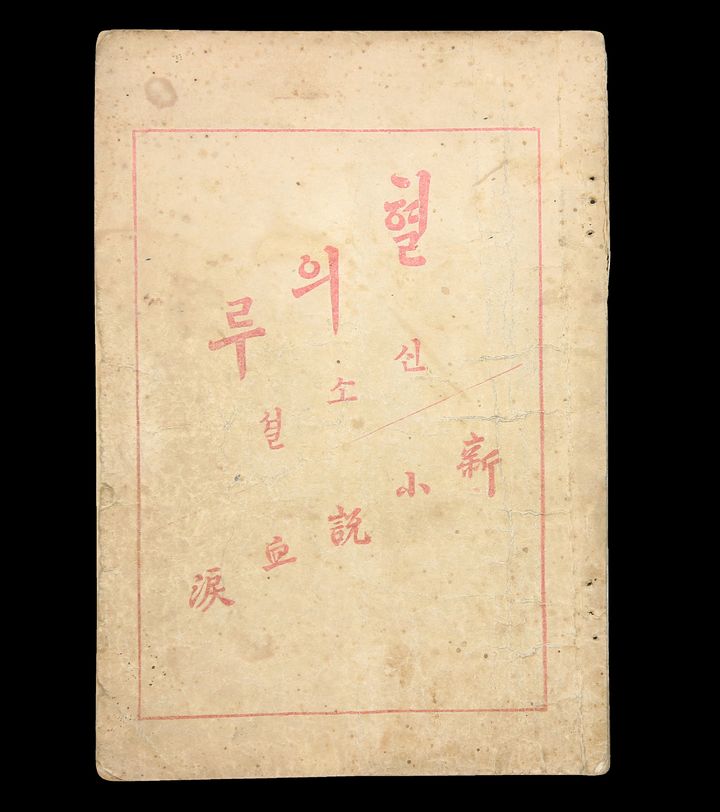 혈의루
신소설
新小説血涙